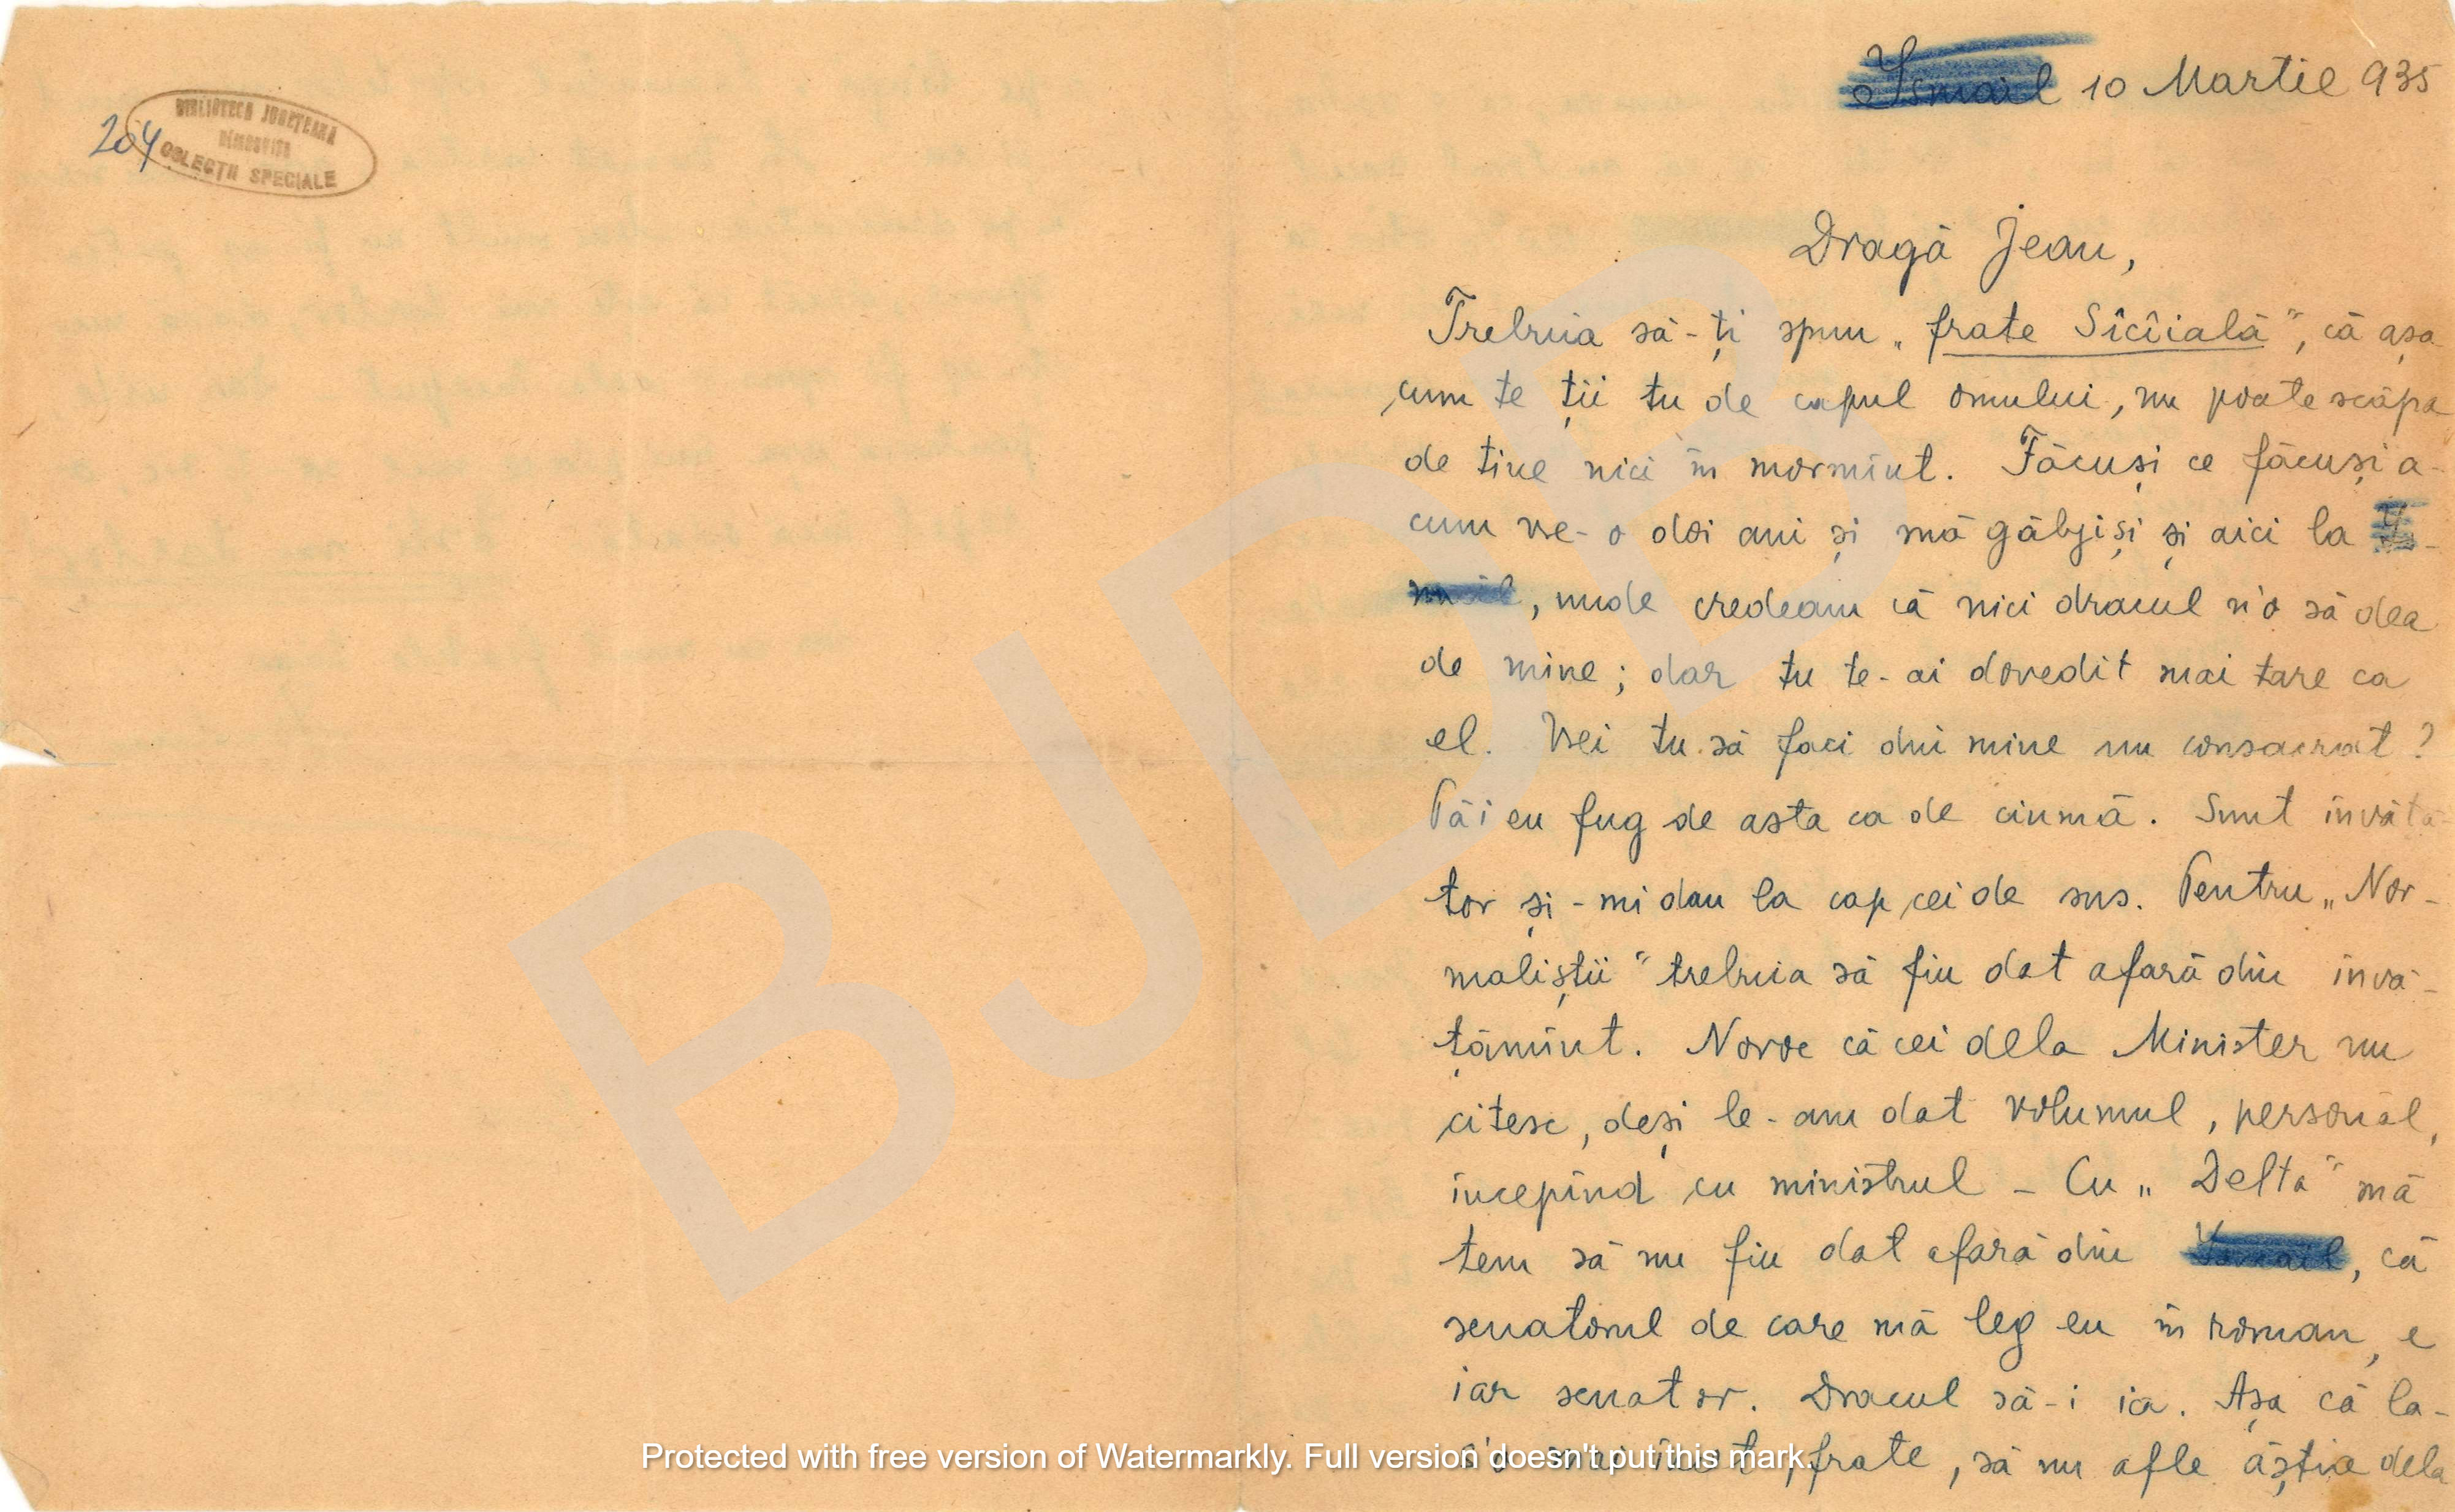 204
BIBLIOTECA JUDEȚEANĂ
DÎMBOVIȚA
COLECȚII SPECIALE
Ismail 10 Martie 935
Dragă Jean,
Trebuia să-ți spun „frate Sîcîială", că așa
cum te ții tu de capul omului, nu poate scăpa
de tine nici în mormînt. Făcuși ce făcuși a-
cum vre-o doi ani și mă găbjiși și aici la Is-
mail, unde credeam că nici dracul n'o să dea
de mine; dar tu te-ai dovedit mai tare ca
el. Vrei tu să faci din mine un consacrat?
Păi eu fug de asta ca de ciumă. Sunt învăță-
tor și-mi dau la cap cei de sus. Pentru „Nor-
maliștii" trebuia să fiu dat afară din învă-
țămînt. Noroc că cei dela Minister nu
citesc, deși le-am dat volumul, personal,
începînd cu ministrul - Cu „Delta" mă
tem să nu fiu dat afară din Ismail, că
senatorul de care mă leg eu în roman, e
iar senator. Dracul să-i ia. Așa că la-
frate, să nu afle ăștia dela
BJD
Protected with free version of Watermarkly. Full version doesn't put this mark.